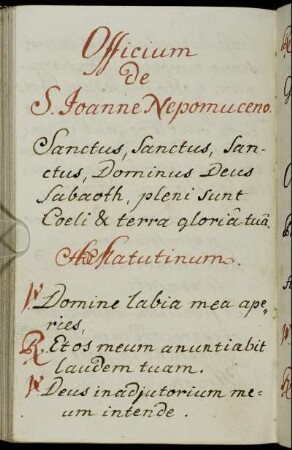 Officium
de
S. Joanne Nepomuceno.
Sanctus, Sanctus, San-
ctus, Dominus Deus
Sabaoth, pleni sunt
Coeli & terra gloria tua.
Ad Matutinum.
℣ Domine labia mea ape,,
ries,
℟. Et os meum anuntiabit
laudem tuam.
℣ Deus in adjutorium me-
um intende.